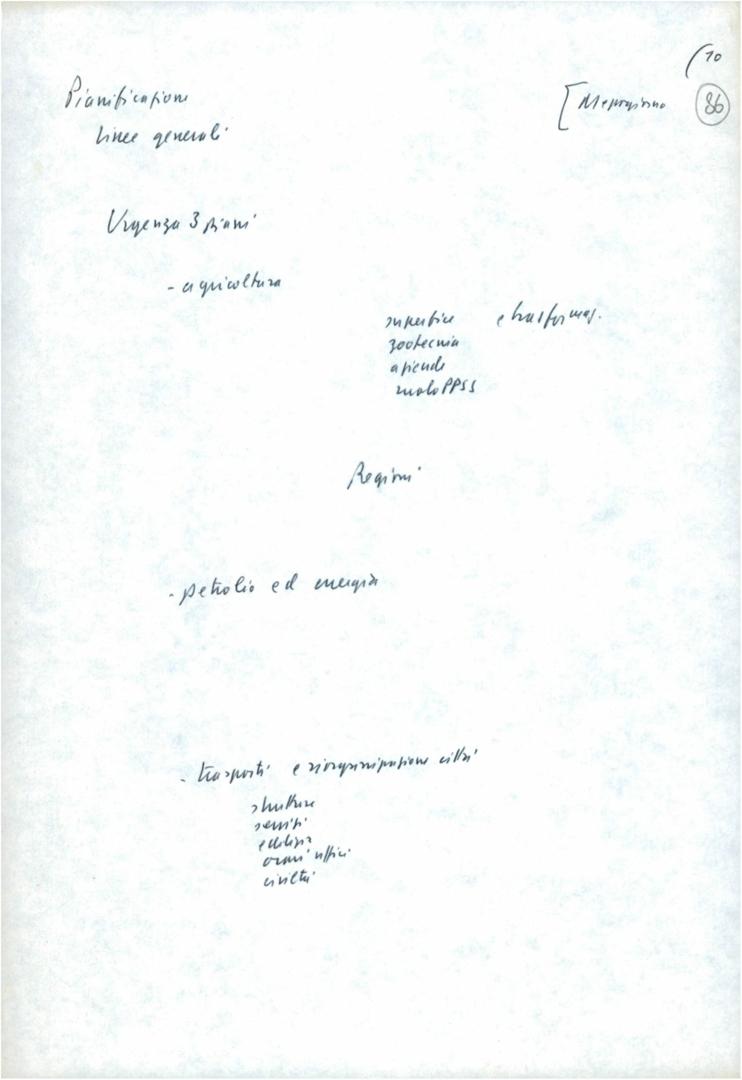 (10
Pianificazione
[ Mezzogiorno 86
linee generali
Urgenza 3 piani
- agricoltura
superfice e trasformaz.
zootecnia
aziende
ruolo PPSS
Regioni
- petrolio ed energia
- trasporti e riorganizzazione città
strutture
servizi
edilizia
orari uffici
civiltà